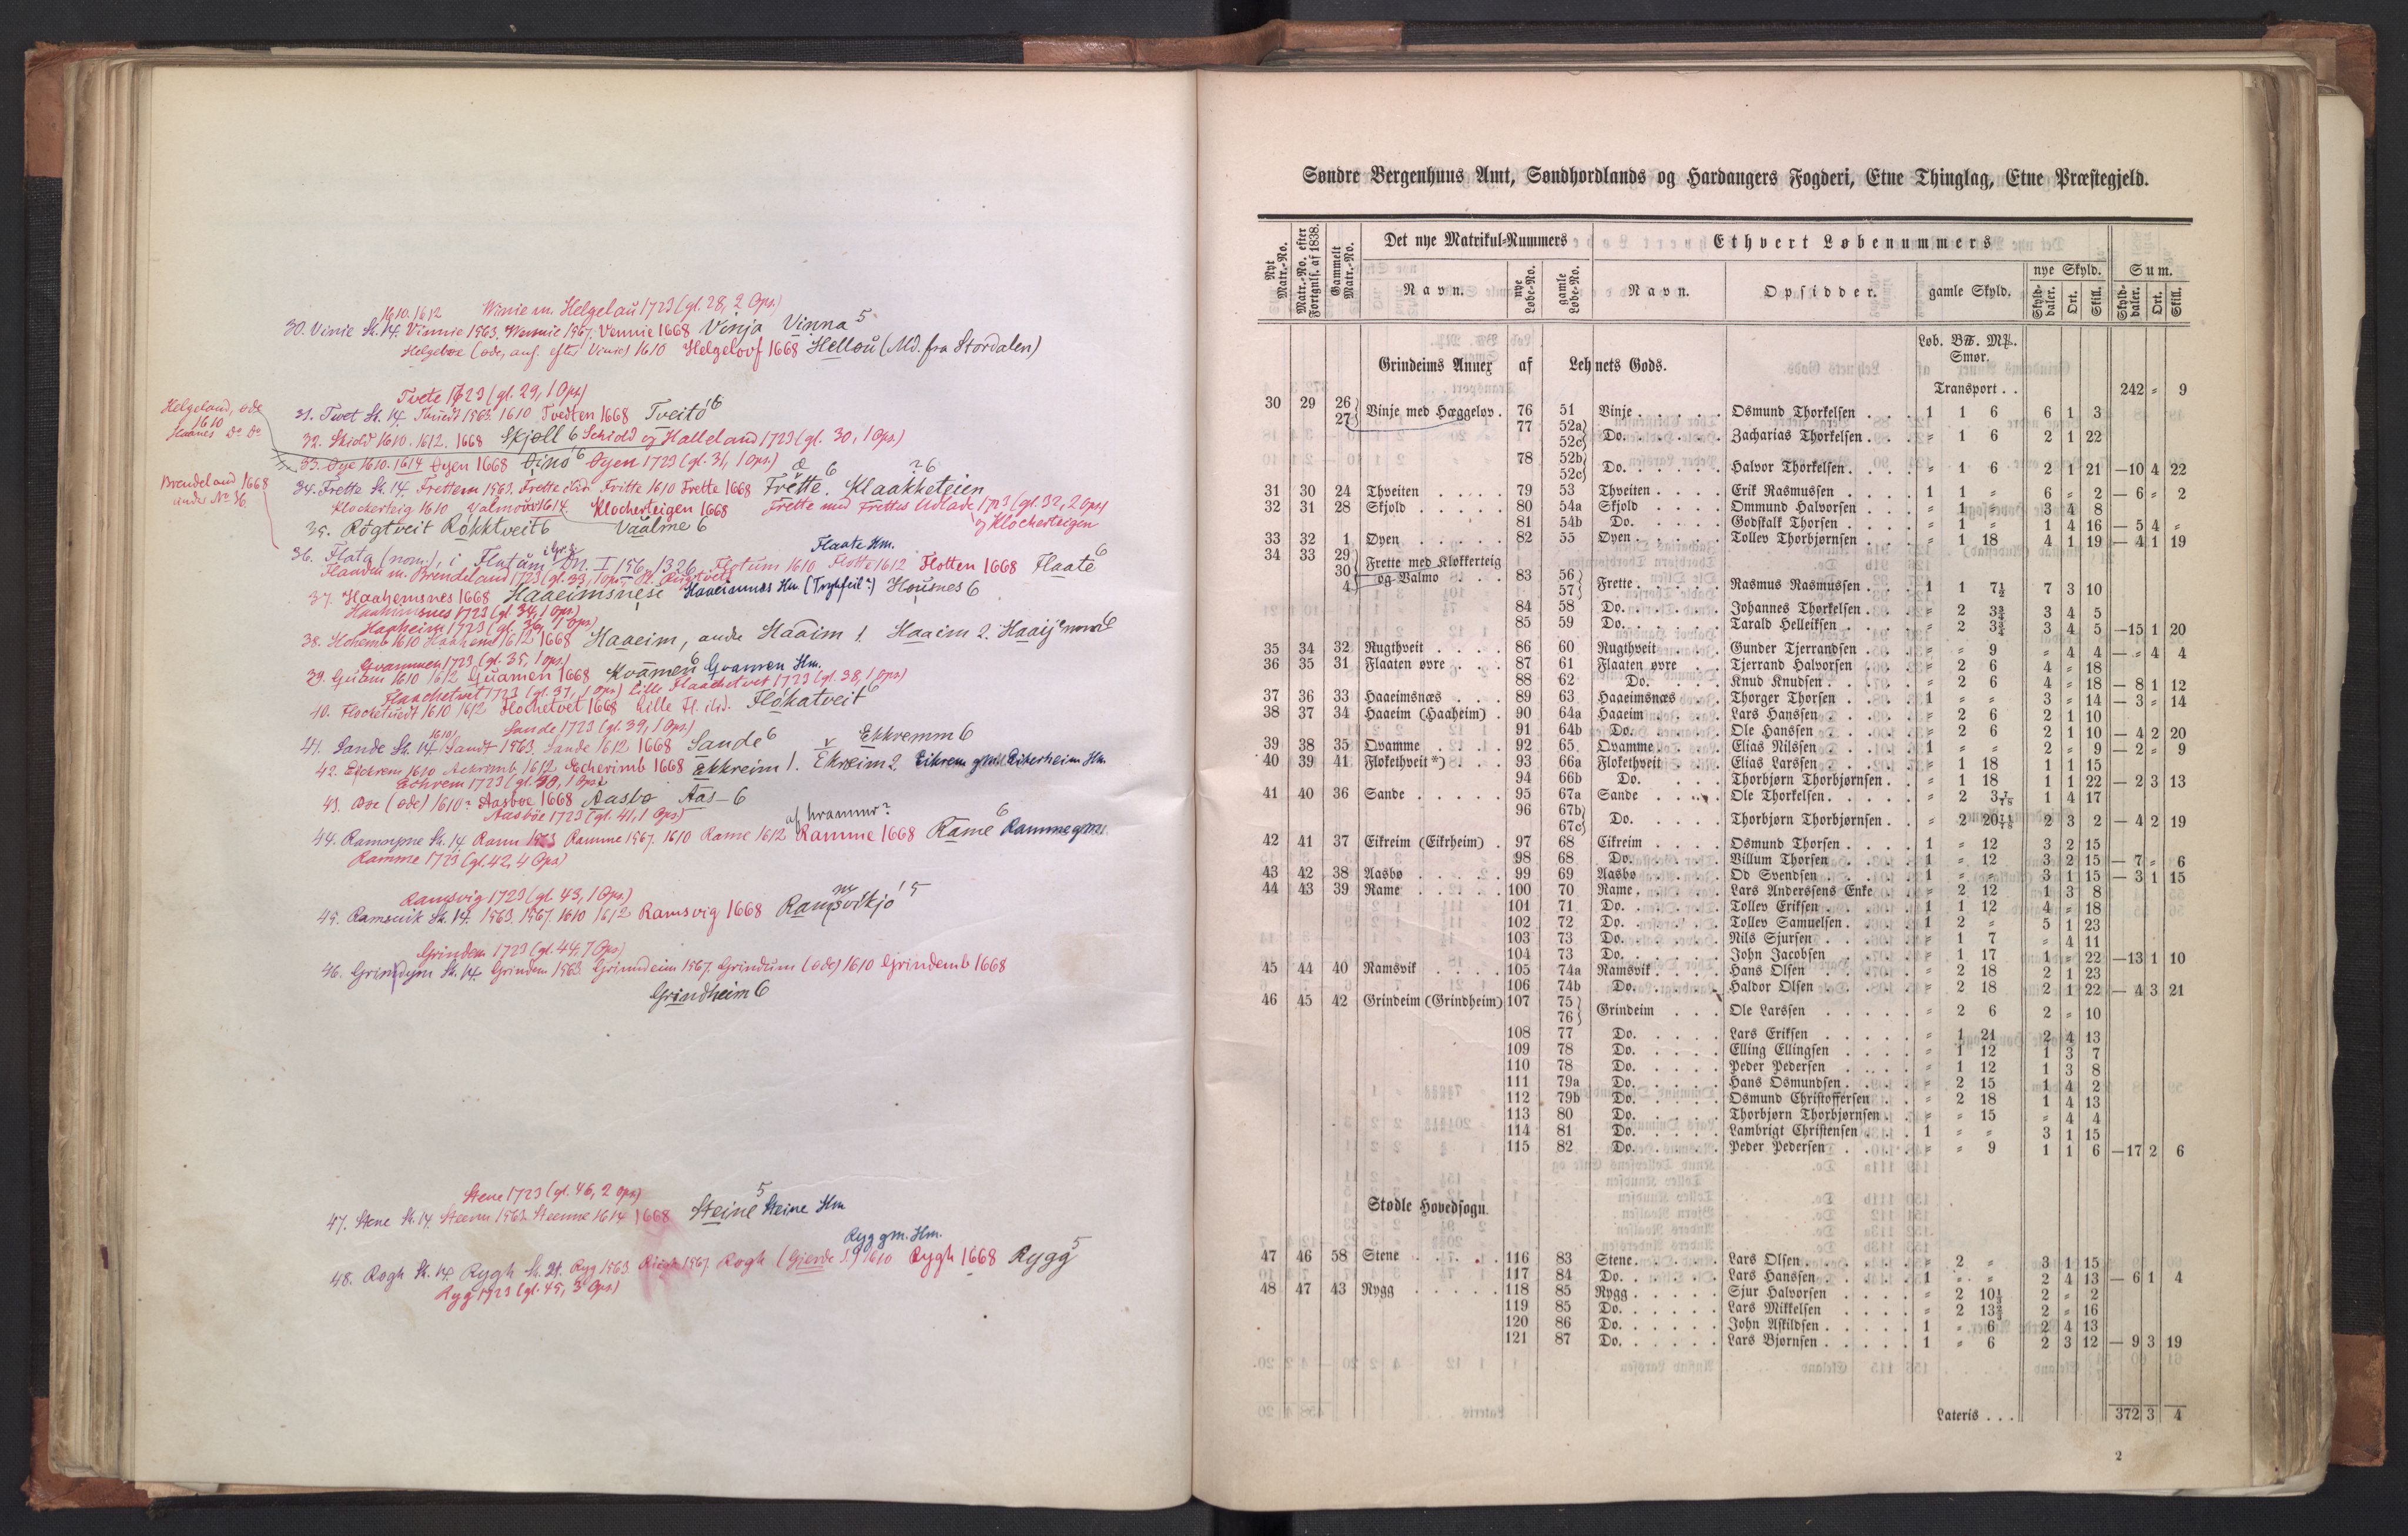 Winie m. Helgelau 1723 (gl. 28, 2 Ops.)
1610. 1612
30. Vinie Sk. 14. Vinnie 1563. Wennie 1567. Vennie 1668 Vinja Vinna 5
Helgeboe (øde, anf. efter Vinie) 1610 Helgelouf 1668 Hellou (Md. fra Stordalen)
Tvete 1723 (gl. 29, 1 Ops.)
31. Twet Sk. 14. Thuedt 1563. 1610 Tvedten 1668 Tveito 6
Helgeland, øde 1610
Haanes Do Do
32. Skiold 1610. 1612. 1668 Skjøll 6 Schiold og Halleland 1723 (gl. 30, 1 Ops.)
33. Øye 1610. 1614 Øyen 1668 Øino 6 Øyen 1723 (gl. 31, 1 Ops.)
Brendeland 1668
under No 36.
34. Frette Sk. 14. Frettem 1563. Frette ibid. Fritte 1610 Frette 1668 Frette. 6 Klaakketeien ? 6
Klockerteig 1610 Valmou 1614 Klocherteigen 1668 Frette med Frettes Udlade 1723 (gl. 32, 2 Ops)
og Klocherteigen
35. Røgtveit Røkktveit 6 Vaalme 6
36. Flata (nom.), i Flutum DN. I 156, 1326. Flotum 1610 Flotte 1612 Flotten 1668 Flaate 6
Flaate Hm.
Flaaden m. Brendeland 1723 (gl. 33, 1 Ops.
37. Haahemsnes 1668 Haaeimsnese Haaeimnds Hm (Trykfeil?) Housnes 6
Haaheimsnes 1723 (gl. 34, 1 Ops.)
Haaheim 1723 (gl. 36, 1 Ops.)
38. Hohemb 1610 Haahem 1612 1668 Haaeim, andre Haaim 1. Haaim 2.
Qvammen 1723 (gl. 35, 1 Ops.)
39. Guam 1610 1612 Guamen 1668 Kvamen 6 Qvamen Hm.
Flaachetvet 1723 (gl. 37, 1 Ops) Lille Flaachetvet 1723 (gl. 38, 1 Ops)
40. Flochetuedt 1610 1612 Flochetvet 1668 Lille Fl. ibid. Flokatveit 6
Sande 1723 (gl. 39, 1 Ops.)
41. Sande Sk. 14 1610 Sandt 1563. Sande 1612 1668 Sande 6
42. Echrem 1610 Aekrimb 1612 Echerimb 1668 Ekkreim 1. Ekreim 2. Ekkremm 6 Eikrem gm. Eikerheim Hm.
Echrem 1723 (gl. 40, 1 Ops.
43. Boe (øde) 1610? Aasboe 1668 Aasbø Aas- 6
Aasbøe 1723 (gl. 41, 1 Ops)
af hrammr?
44. Ramnyne Sk. 14 Ramm 1563 Ramme 1567. 1610 Rame 1612 Ramme 1668 Rame 6 Ramme gm.
Ramme 1723 (gl. 42, 4 Ops)
Ramsvig 1723 (gl. 43, 1 Ops.)
45. Ramsuik Sk. 14. 1563. 1567. 1610 1612 Ramsvig 1668 Ramsvikjo 5
Grindem 1723 (gl. 44, 7 Ops)
46. Grindym Sk. 14. Grindem 1563 Grinndeim 1567. Grindum (øde) 1610 Grindemb 1668
Grindheim 6
Stene 1723 (gl. 46, 2 Ops.)
47. Stene Sk. 14. Steenn 1563. Steenne 1614 1668 Steine 5 Steine Hm
Ryg gm. Hm.
48. Rogh Sk. 14 Rygh Sk. 21. Ryg 1563 1567. Rogh (Gjerde ?) 1610 Rygh 1668 Rygg 5
Ryg 1723 (gl. 45, 3 Ops.)
Søndre Bergenhuus Amt, Søndhordlands og Hardangers Fogderi, Etne Thinglag, Etne Præstegjeld.
Nyt Matr.-No. | Matr.-No. efter Fortgnlf. af 1838. | Gammelt Matr.-No. | Det nye Matrikul-Nummers | Ethvert Løbenummers
Navn. | nye Løbe-No. | gamle Løbe-No. | Navn. | Opsidder. | gamle Skyld. | nye Skyld. | Sum.
Skylddaler. | Ort. | Skill. | Skylddaler. | Ort. | Skill.
Løb. B℔. M℔.
Smør.
Grindeims Annex af Lehnets Gods.
Transport . . 242 " 9
30 29 26 27} Vinje med Hæggeløv . 76 51 Vinje Osmund Thorkelsen 1 1 6 6 1 3
77 52a} 52c} Do. Zacharias Thorkelsen " 1 6 2 1 22
78 52b} 52c} Do. Halvor Thorkelsen " 1 6 2 1 21 —10 4 22
31 30 24 Thveiten 79 53 Thveiten Erik Rasmussen 1 1 " 6 " 2 — 6 " 2
32 31 28 Skjold 80 54a Skjold Ommund Halvorsen " 1 " 3 4 8
81 54b Do. Godskalk Thorsen " 1 " 1 4 16 — 5 4 "
33 32 1 Øyen 82 55 Øyen Tollev Thorbjørnsen " 1 18 4 1 19 — 4 1 19
34 33 29 30 4} Frette med Klokkerteig og Valmo 83 56} 57} Frette Rasmus Rasmussen 1 1 7½ 7 3 10
84 58 Do. Johannes Thorkelsen " 2 3¾ 3 4 5
85 59 Do. Tarald Helleiksen " 2 3¾ 3 4 5 —15 1 20
35 34 32 Rugthveit 86 60 Rugthveit Gunder Tjerrandsen " " 9 " 4 4 — " 4 4
36 35 31 Flaaten øvre 87 61 Flaaten øvre Tjerrand Halvorsen " 2 6 4 " 18
88 62 Do. Knud Knudsen " 2 6 4 " 18 — 8 1 12
37 36 33 Haaeimsnæs 89 63 Haaeimsnæs Thorger Thorsen 1 " " 3 " 14 — 3 " 14
38 37 34 Haaeim (Haaheim) . 90 64a Haaeim Lars Hanssen " 2 6 2 1 10
91 64b Do. Ole Hanssen " 2 6 2 1 10 — 4 2 20
39 38 35 Qvamme 92 65 Qvamme Elias Nilssen 1 " " 2 " 9 — 2 " 9
40 39 41 Flokethveit *) 93 66a Flokethveit Elias Larssen " 1 18 1 1 15
94 66b Do. Thorbjørn Thorbjørnsen " 1 18 1 1 22 — 2 3 13
41 40 36 Sande 95 67a Sande Ole Thorkelsen " 2 1 4 17
96 67b} 67c} Do. Thorbjørn Thorbjørnsen " 2 2 3 2 — 4 2 19
42 41 37 Eikreim (Eikrheim) . 97 68 Eikreim Osmund Thorsen 1 " 12 3 2 15
98 68 Do. Villum Thorsen 1 " 12 3 2 15 — 7 " 6
43 42 38 Aasbø 99 69 Aasbø Od Svendsen 1 " " 3 1 15 — 3 1 15
44 43 39 Rame 100 70 Rame Lars Anderssens Enke " 2 12 1 3 8
101 71 Do. Tollev Eriksen 1 1 12 4 " 18
102 72 Do. Tollev Samuelsen 1 2 " 5 1 23
103 73 Do. Nils Sjursen " 1 7 " 4 11
104 73 Do. John Jacobsen " 1 17 1 " 22 —13 1 10
45 44 40 Ramsvik 105 74a Ramsvik Hans Olsen " 2 18 2 1 23
106 74b Do. Haldor Olsen " 2 18 2 1 22 — 4 3 21
46 45 42 Grindeim (Grindheim) 107 75} 76} Grindeim Ole Larssen " 2 6 2 " 10
108 77 Do. Lars Eriksen " 1 21 2 4 13
109 78 Do. Elling Ellingsen " 1 12 1 3 7
110 78 Do. Peder Pedersen " 1 12 1 3 8
111 79a Do. Hans Osmundsen " 2 15 1 4 2
112 79b Do. Osmund Christoffersen " 2 18 1 4 13
113 80 Do. Thorbjørn Thorbjørnsen " " 15 " 4 4
114 81 Do. Lambrigt Christensen 1 " " 3 1 15
115 82 Do. Peder Pedersen " " 9 1 1 6 —17 2 6
Stødle Hovedsogn.
47 46 58 Stene 116 83 Stene Lars Olsen " 2 " 3 1 15
117 84 Do. Lars Hanssen 1 " " 2 4 13 — 6 1 4
48 47 43 Rygg 118 85 Rygg Sjur Halvorsen " 2 10⅓ 2 " 2
119 85 Do. Lars Mikkelsen " 2 13⅔ 2 " 16
120 86 Do. John Askildsen 1 " 6 2 4 13
121 87 Do. Lars Bjørnsen 1 " 6 2 3 12 — 9 3 19
Lateris . . . 372 3 4
2